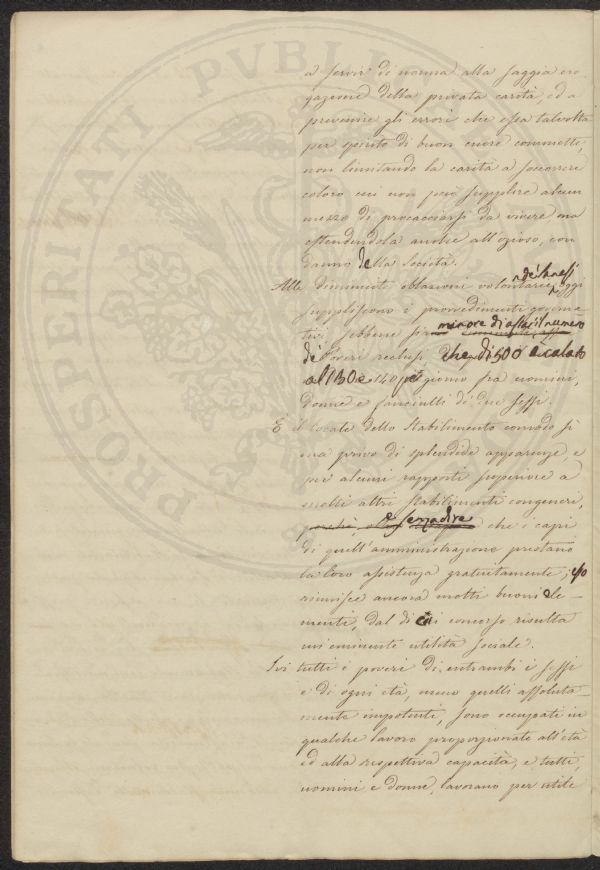 PROSPERITATI PVBLICAE
a servir di norma alla saggia ero-
gazione della privata carità, ed a
prevenire gli errori che essa talvolta
per spirito di buon cuore commette,
non limitando la carità a soccorrere
coloro cui non può supplire alcun
mezzo di procacciarsi da vivere ma
estendendola anche all'ozioso, con
danno della Società.
Alle diminuite oblazioni volontarie de' Sanesi oggi
suppliscono i provvedimenti governa-
tivi, sebbene sia minore di assai il numero
de' Poveri reclusi, che di 500 è calato
al 130 e 140 per giorno fra uomini,
donne e fanciulli de' due sessi.
E il locale dello Stabilimento comodo sì
ma privo di splendide apparenze, e
per alcuni rapporti superiore a
molti altri stabilimenti congeneri,
perchè, e senza dire che i capi
di quell'amministrazione prestano
la loro assistenza gratuitamente, esso
riunisce ancora molti buoni ele-
menti, dal di cui concorso risulta
un'eminente utilità sociale.
Ivi tutti i poveri di entrambi i sessi
e di ogni età, meno quelli assoluta-
mente impotenti, sono occupati in
qualche lavoro proporzionato all'età
ed alla respettiva capacità, e tutti,
uomini e donne, lavorano per utile